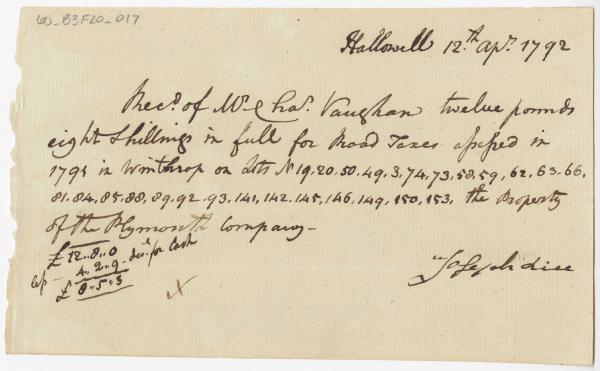 W_B3F20_017
Hallowell 12.th Apr. 1792
Rec.d of Mr. Cha.s Vaughan twelve pounds
eight Shillings in full for Road Taxes assessed in
1791 in Winthrop on Lots N 19. 20. 50. 49. 3. 74. 73. 58. 59. 62. 63. 66.
81. 84. 85. 88. 89. 92. 93. 141. 142. 145. 146. 149. 150. 153. the Property
of the Plymouth Company—
£12..8..0
4..2..9 for Cash
£8..5..3
X
Joseph